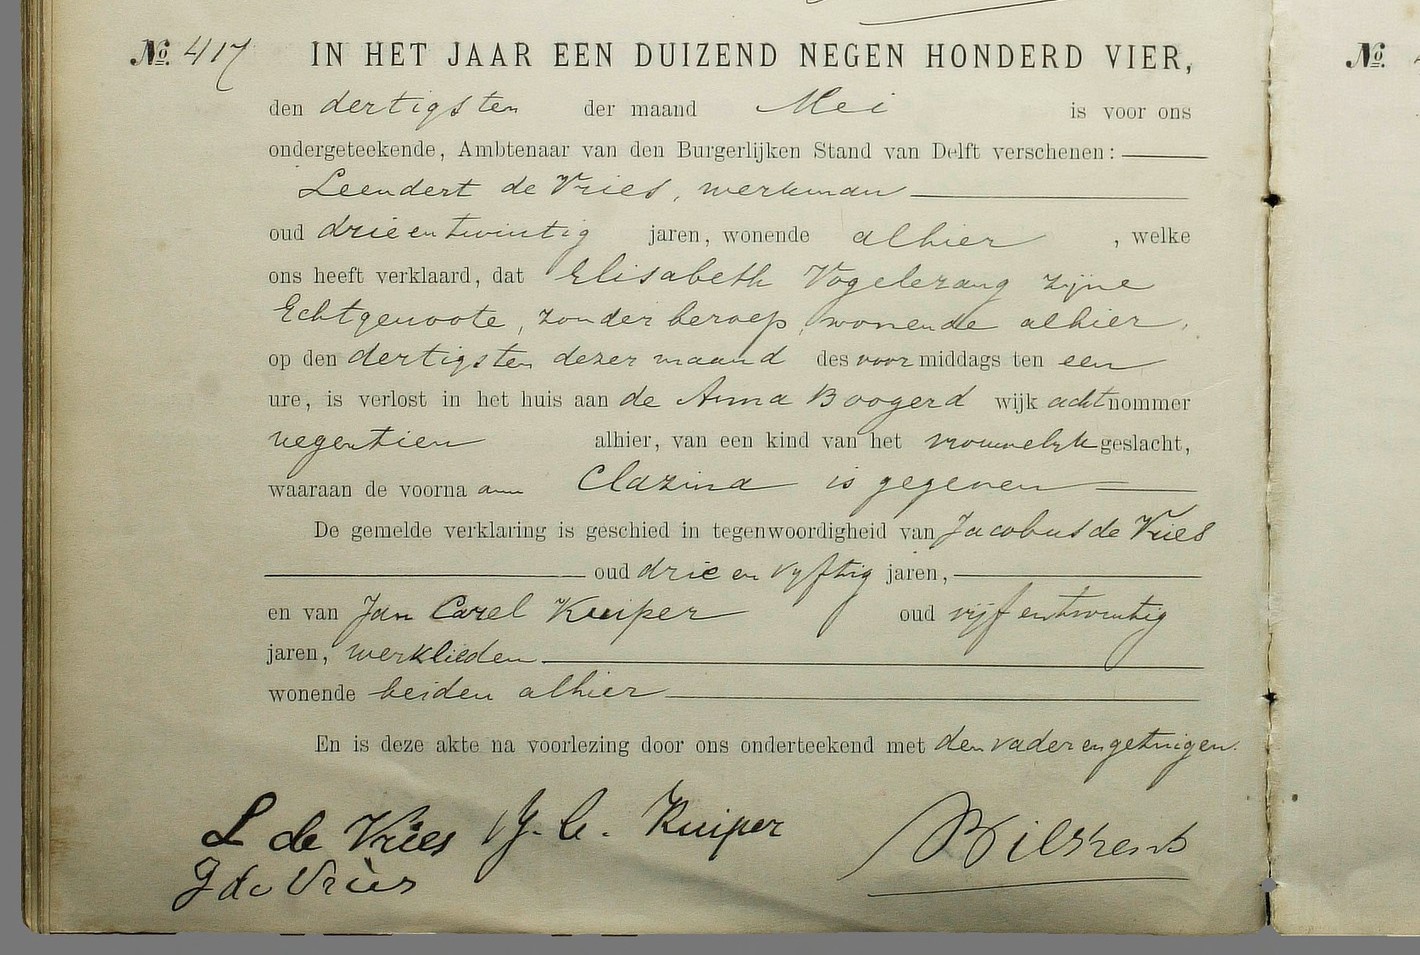 № 417 IN HET JAAR EEN DUIZEND NEGEN HONDERD VIER, №
den dertigsten der maand Mei is voor ons
ondergeteekende, Ambtenaar van den Burgerlijken Stand van Delft verschenen:
Leendert de Vries, werkman
oud drie en twintig jaren, wonende alhier, welke
ons heeft verklaard, dat Elisabeth Vogelezang zijne
Echtgenoote, zonder beroep, wonende alhier,
op den dertigsten dezer maand des voormiddags ten een
ure, is verlost in het huis aan de Anna Boogerd wijk acht nommer
negentien alhier, van een kind van het vrouwelijk geslacht,
waaraan de voornaam Clazina is gegeven
De gemelde verklaring is geschied in tegenwoordigheid van Jacobus de Vries
oud drie en vijftig jaren,
en van Jan Carel Kuiper oud vijf en twintig
jaren, werklieden
wonende beiden alhier
En is deze akte na voorlezing door ons onderteekend met den vader en getuigen.
L de Vries J. C. Kuiper
J de Vries